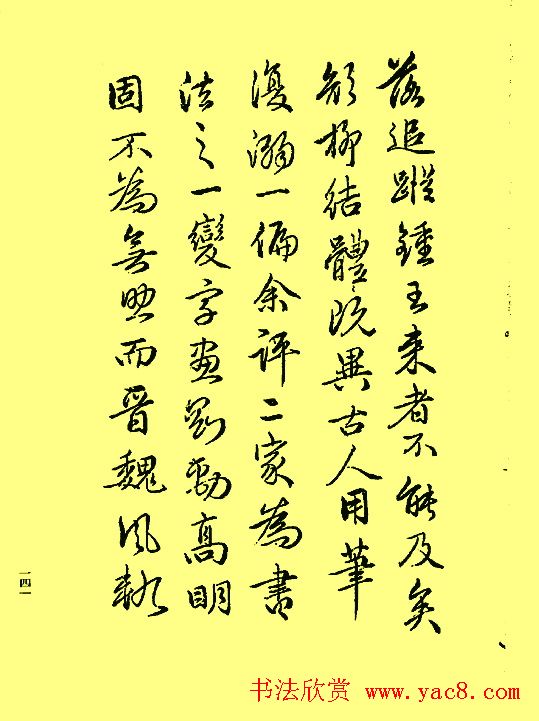 落追蹤鍾王来者不能及矣
顔柳結體既異古人用筆
復溺一偏余評二家為書
法之一變字畫剛勁高明
固不為無照而晉魏風軌
一四一
书法欣赏 www.yac8.com